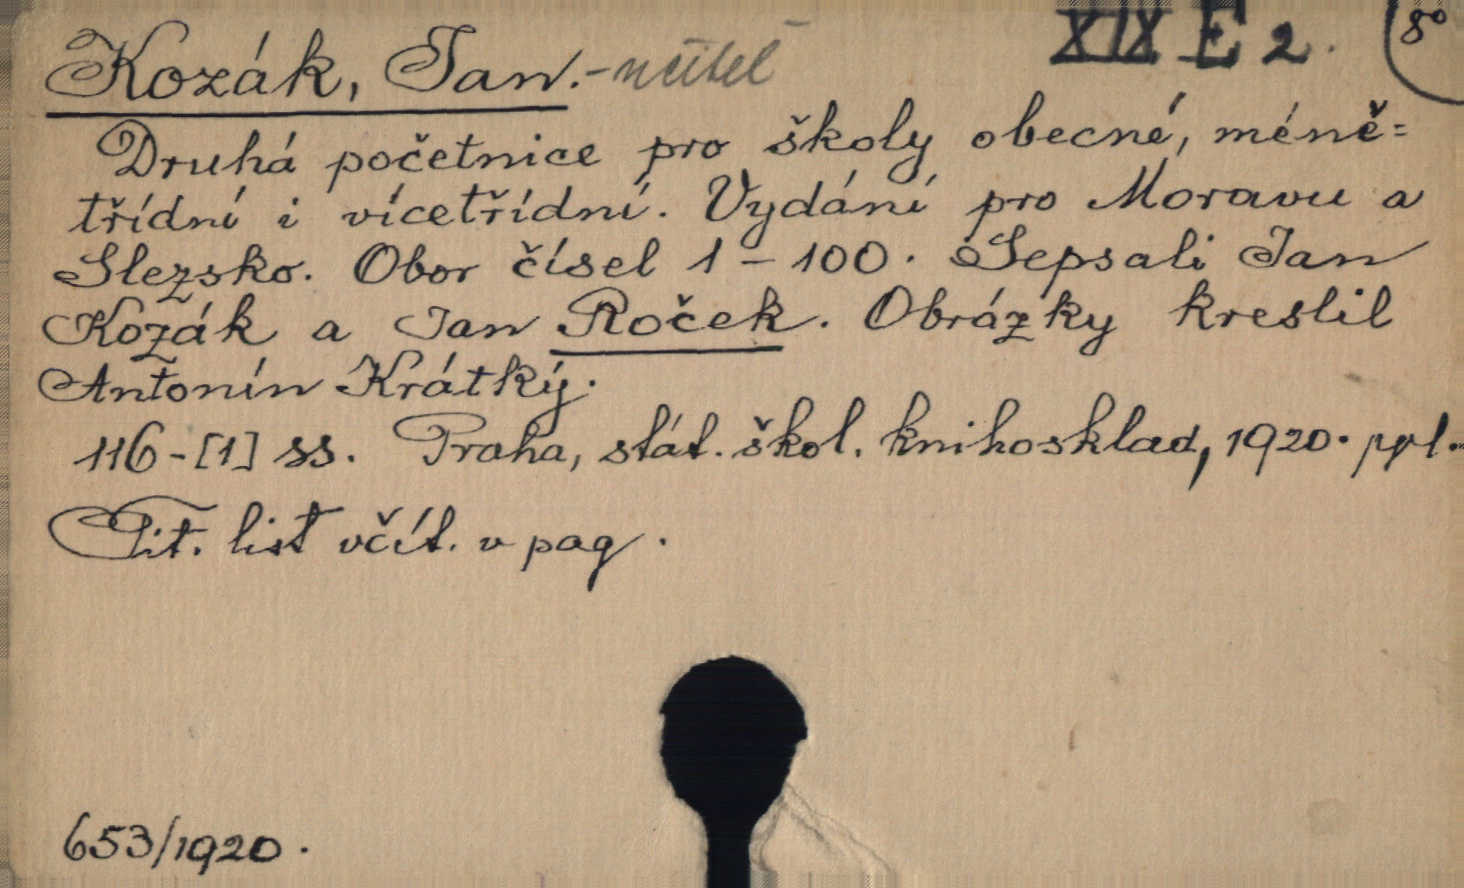 XIX E 2. 8°
Kozák, Jan. - učitel
Druhá početnice pro školy obecné, méně=
třídní i vícetřídní. Vydání pro Moravu a
Slezsko. Obor čísel 1 - 100. Sepsali Jan
Kozák a Jan Roček. Obrázky kreslil
Antonín Krátký.
116-[1] ss. Praha, stát. škol. knihosklad, 1920. ppl.
Tit. list včít. v pag.
653/1920.